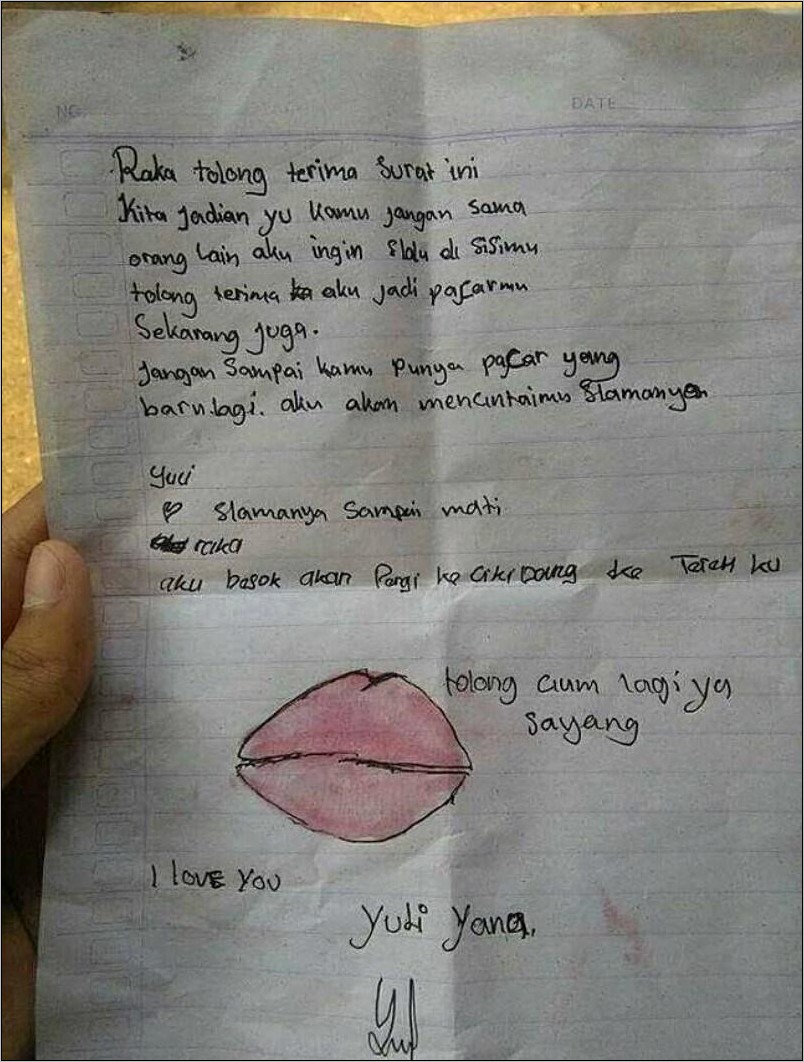 NO.
DATE
Raka tolong terima surat ini
Kita jadian yu kamu jangan sama
orang lain aku ingin slalu di sisimu
tolong terima aku jadi pacarmu
Sekarang juga.
Jangan sampai kamu punya pacar yang
baru lagi. aku akan mencintaimu slamanya
Yuci
♡ slamanya sampai mati
raka
aku besok akan Pergi ke Cikidang ke
tolong cium lagi ya
sayang
I love you
Yuli Yana.